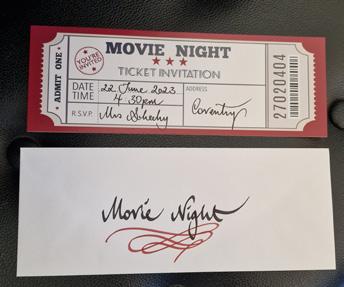 ADMIT ONE
YOU'RE INVITED
MOVIE NIGHT
TICKET INVITATION
DATE 22 June 2023
TIME 4 30pm
ADDRESS
Coventry
R.S.V.P. Mrs
27020404
Movie Night